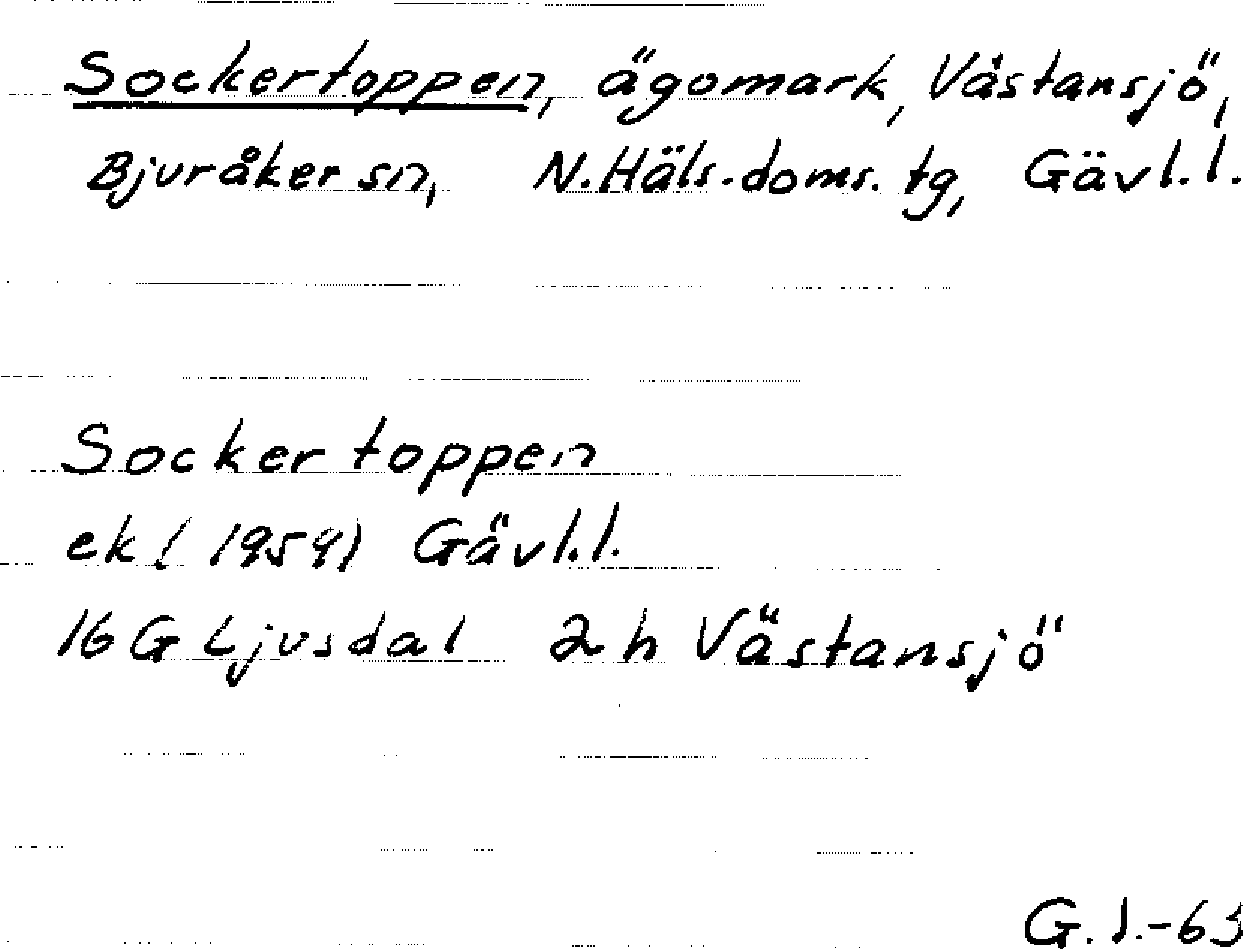 Sockertoppen, ägomark, Västansjö,
Bjuråker sn, N.Häls.doms.tg, Gävl.l.
Sockertoppen
ek ( 1959) Gävl.l.
16 G Ljusdal 2 h Västansjö
G. l.-63